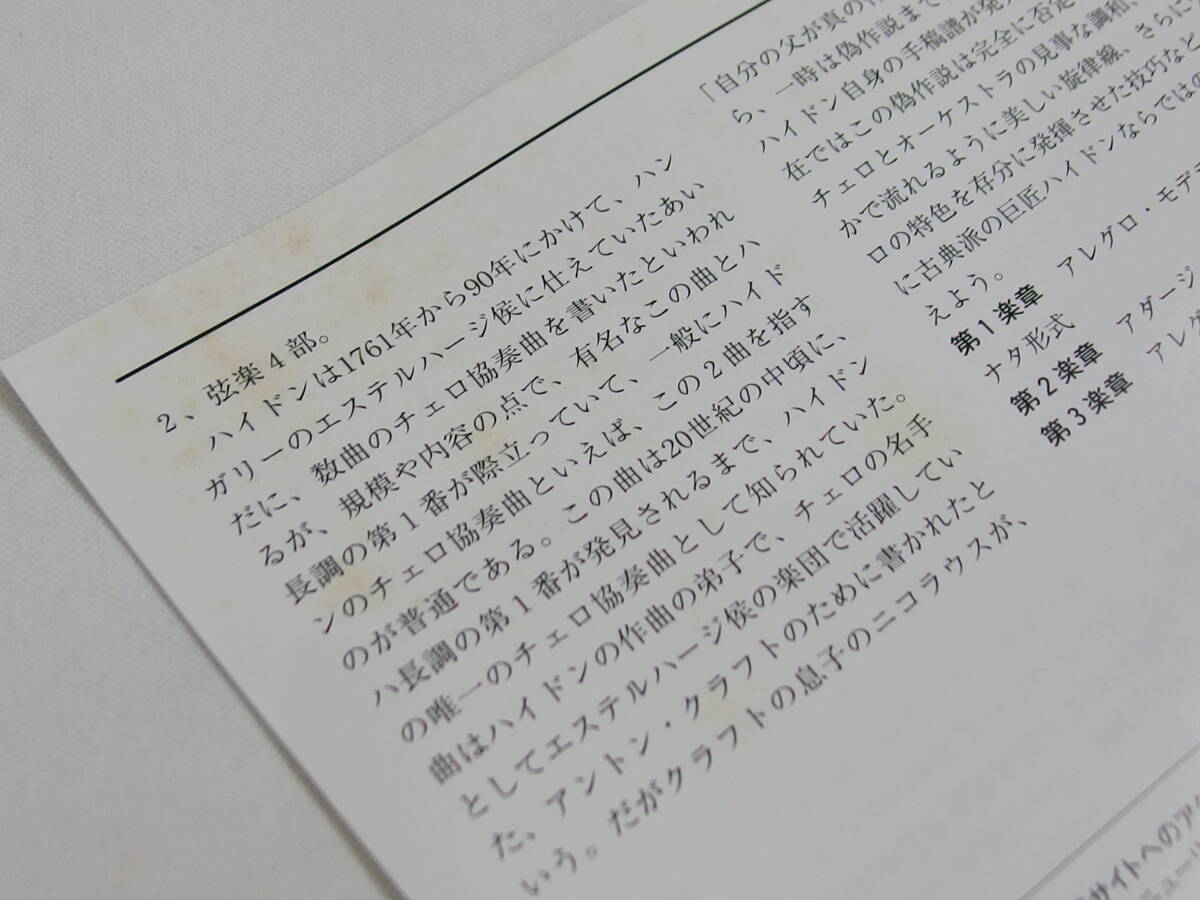 2、弦楽4部。
ハイドンは1761年から90年にかけて、ハン
ガリーのエステルハージ侯に仕えていたあい
だに、数曲のチェロ協奏曲を書いたといわれ
るが、規模や内容の点で、有名なこの曲とハ
長調の第1番が際立っていて、一般にハイド
ンのチェロ協奏曲といえば、この2曲を指す
のが普通である。この曲は20世紀の中頃に、
ハ長調の第1番が発見されるまで、ハイドン
の唯一のチェロ協奏曲として知られていた。
曲はハイドンの作曲の弟子で、チェロの名手
としてエステルハージ侯の楽団で活躍してい
た、アントン・クラフトのために書かれたと
いう。だがクラフトの息子のニコラウスが、
「自分の父が真の作
ら、一時は偽作説まで
ハイドン自身の手稿譜が発
在ではこの偽作説は完全に否定
チェロとオーケストラの見事な調和、
かで流れるように美しい旋律線、さらに
ロの特色を存分に発揮させた技巧など
に古典派の巨匠ハイドンならではの
えよう。
第1楽章 アレグロ・モデ
ナタ形式
第2楽章 アダージ
第3楽章 アレグ
サイトへのア
ニュー